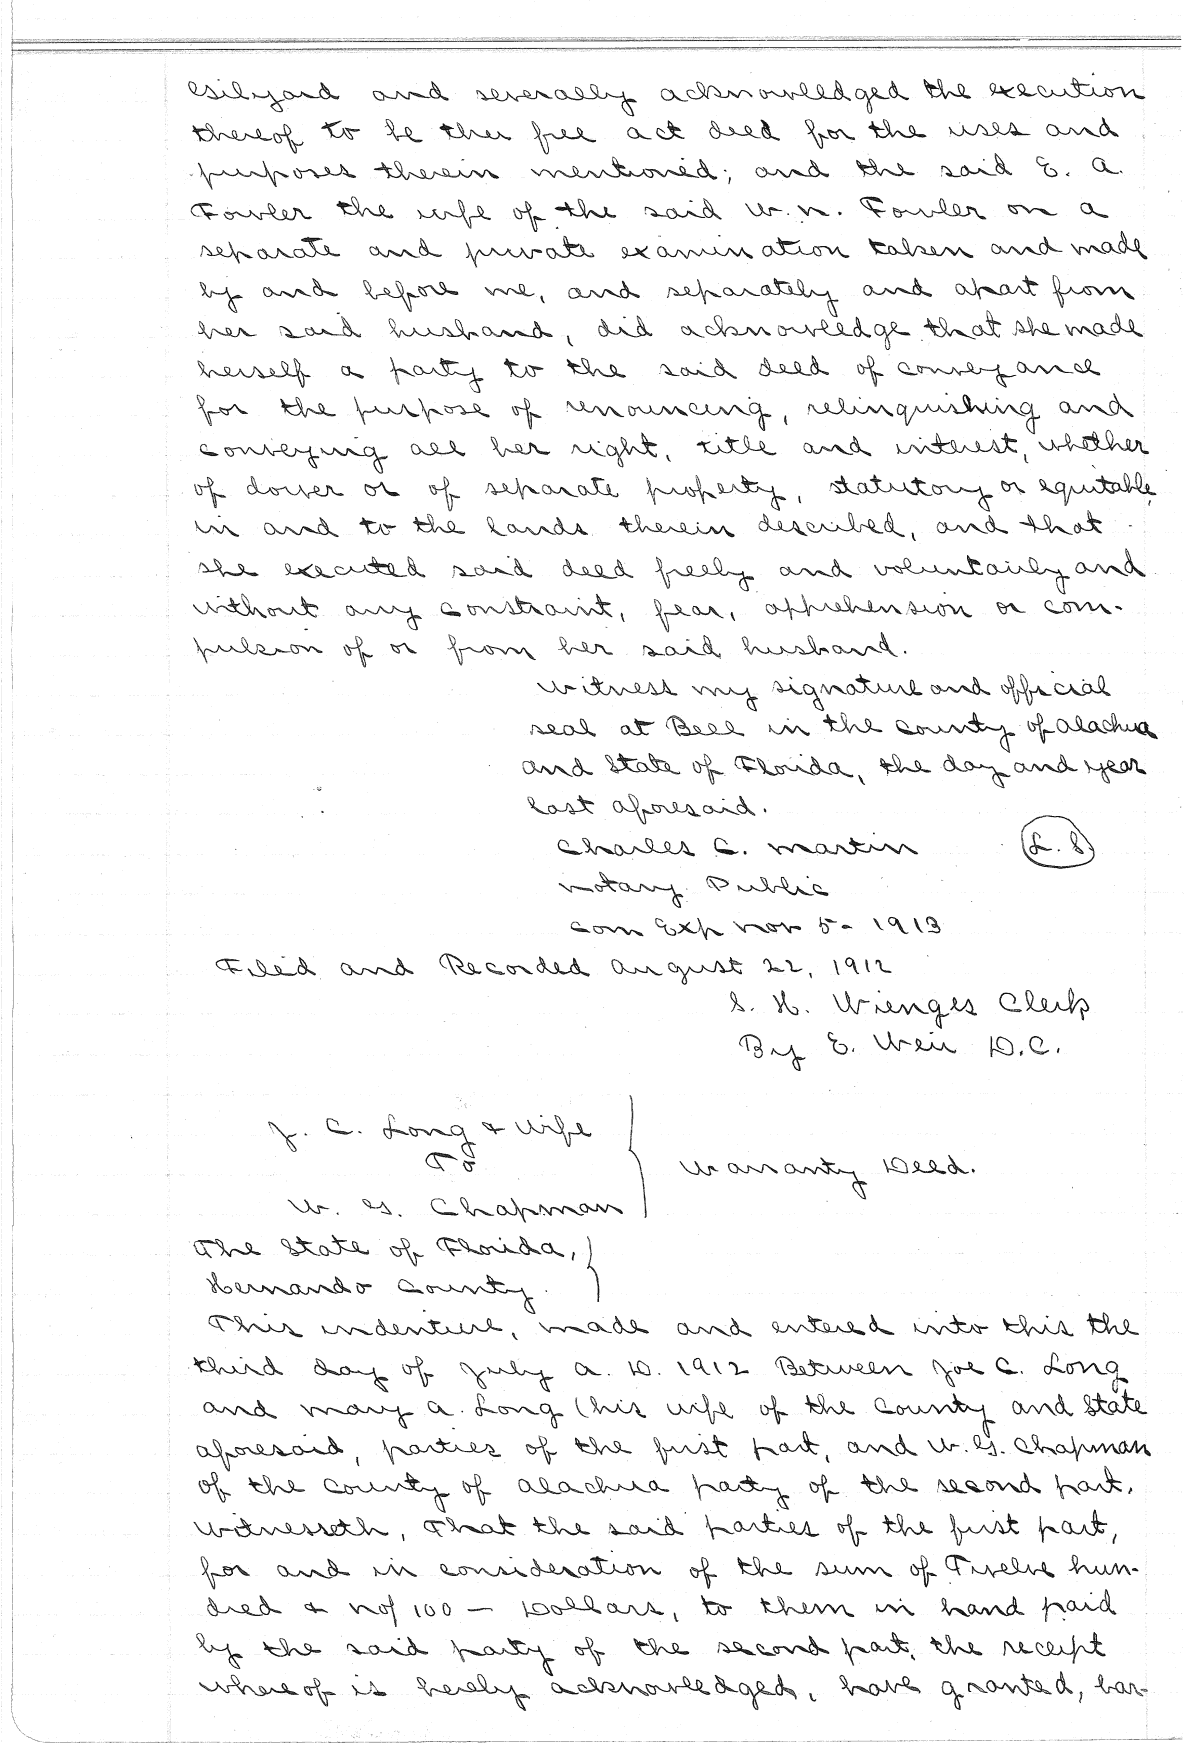 and severally acknowledged the execution
thereof to be their free act deed for the uses and
purposes therein mentioned; and the said E. A.
Fowler the wife of the said W. N. Fowler on a
separate and private examination taken and made
by and before me, and separately and apart from
her said husband, did acknowledge that she made
herself a party to the said deed of conveyance
for the purpose of renouncing, relinquishing and
conveying all her right, title and interest, whether
of dower or of separate property, statutory or equitable,
in and to the lands therein described, and that
she executed said deed freely and voluntairly and
without any constraint, fear, apprehension or com-
pulsion of or from her said husband.
Witness my signature and official
seal at Bell in the County of Alachua
and State of Florida, the day and year
last aforesaid.
Charles C. Martin (L. S.)
Notary Public
Com Exp Nov 5- 1913
Filed and Recorded August 22, 1912
S. H. Wienges Clerk
By E. Weir D.C.
J. C. Long & Wife
To
W. G. Chapman
Warranty Deed.
The State of Florida,
Hernando County.
This indenture, made and entered into this the
third day of July A. D. 1912 Between Joe C. Long
and Mary A. Long (his wife of the County and State
aforesaid, parties of the first part, and W. G. Chapman
of the County of Alachua party of the second part,
Witnesseth, That the said parties of the first part,
for and in consideration of the sum of Twelve hun-
dred & no/100 — Dollars, to them in hand paid
by the said party of the second part, the receipt
whereof is hereby acknowledged, have granted, bar-